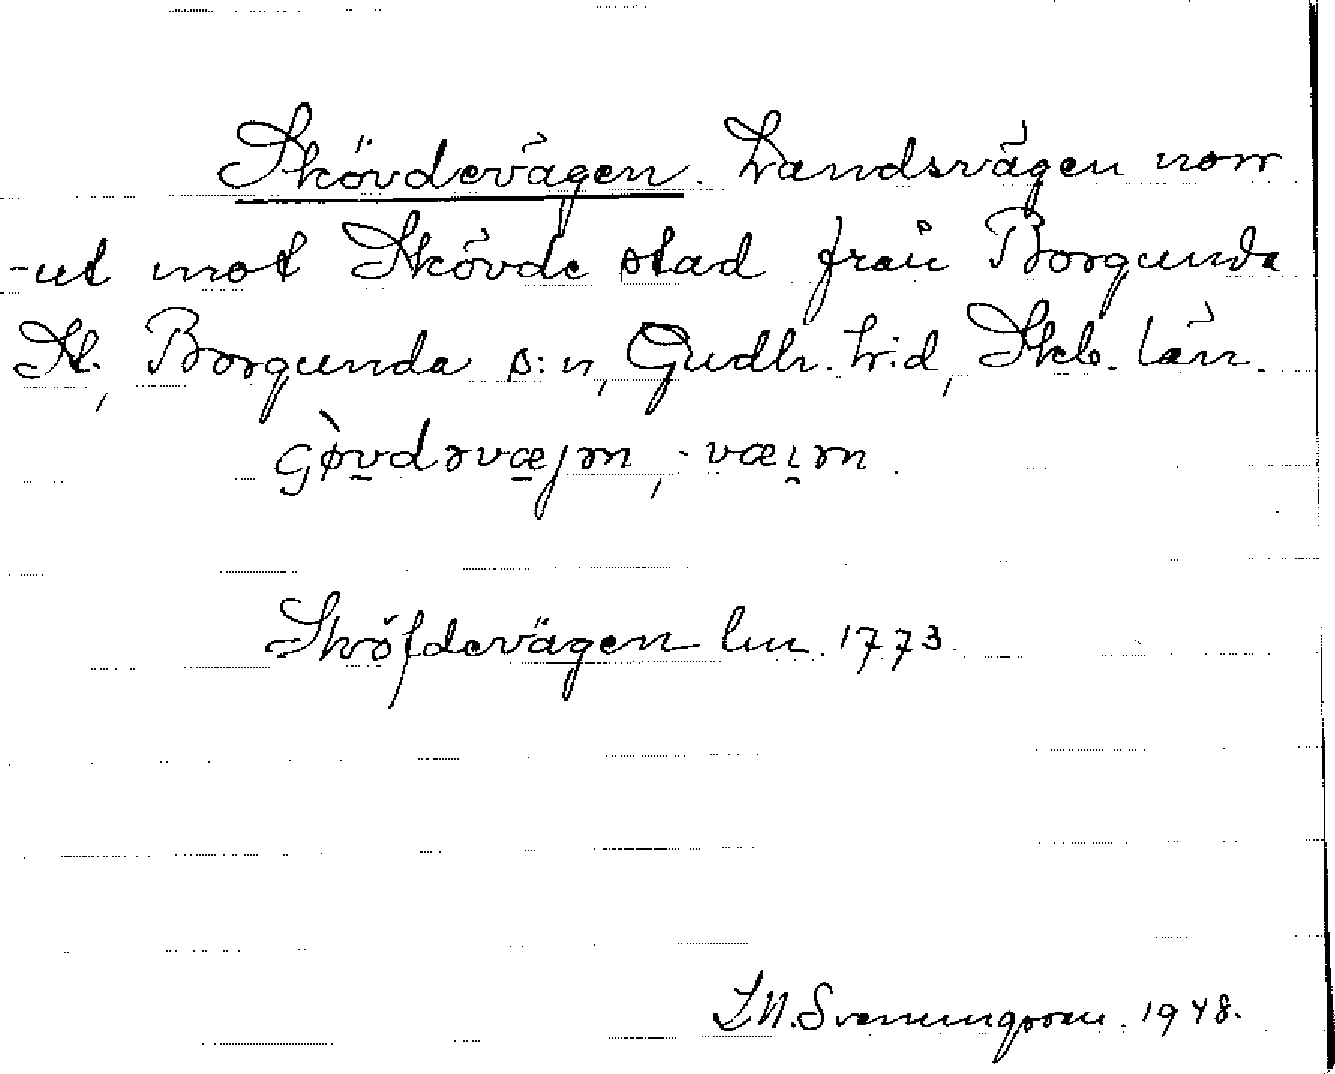 Skövdevägen. Landsvägen norr
-ut mot Skövde stad från Borgunda
St., Borgunda s:n, Gudh. h:d, Skb. län.
çø̀vdəvæjən, -væi̯ən.
Sköfdevägen lm. 1773
L.N. Svenungsson. 1948.